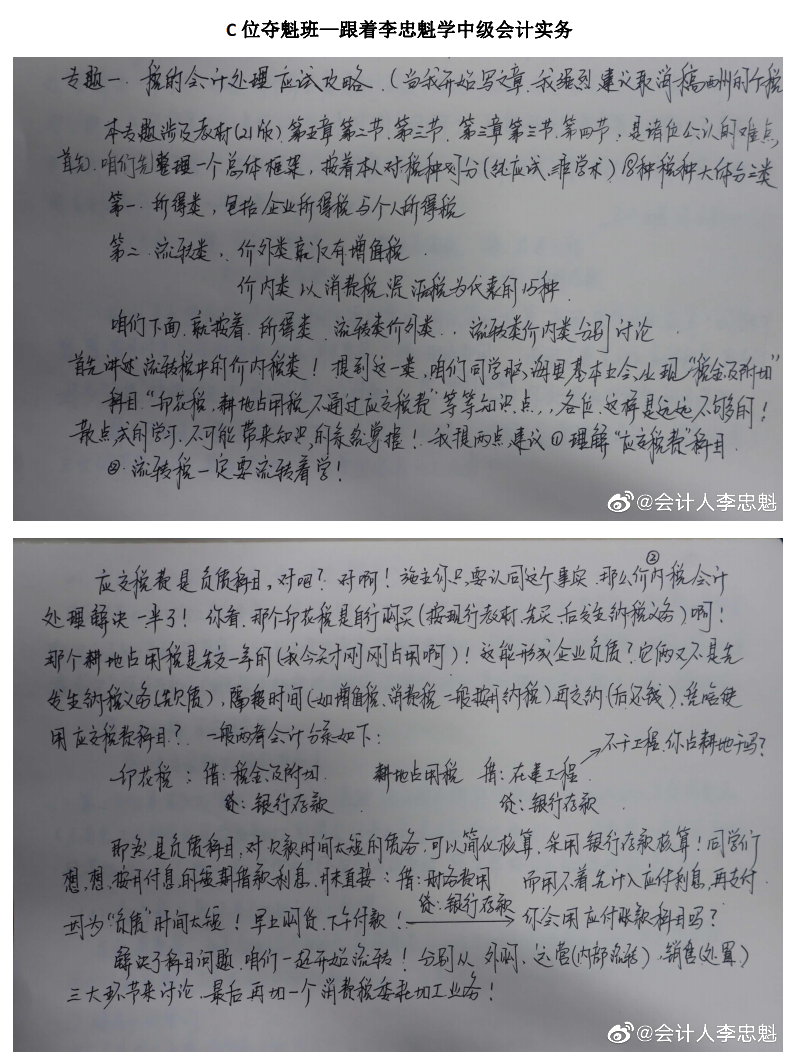 C位夺魁班—跟着李忠魁学中级会计实务
专题一、税的会计处理应试攻略.(当我开始写文章.我强烈建议取消稿酬的个税
本专题涉及教材(21版)第五章第二节.第三节.第三章第三节.第四节,是诸位公认的难点
首先.咱们先整理一个总体框架,按着本人对税种划分(纯应试.非学术)18种税种大体分三类
第一.所得类,包括企业所得税与个人所得税
第二.流转类,价外类就仅有增值税.
价内类以消费税.资源税为代表的15种.
咱们下面.就按着.所得类.流转类价外类..流转类价内类分别讨论
首先讲述流转税中的价内税类!提到这一类,咱们同学脑海里基本上会出现"税金及附加"
科目."印花税,耕地占用税不通过应交税费"等等知识点,,各位.这样是远远不够的!
散点式的学习.不可能带来知识的系统掌握!我提两点建议①理解"应交税费"科目
②.流转税一定要流转着学!
@会计人李忠魁
应交税费是负债科目,对吧?对啊!施主你只要认同这个事实.那么价内税会计
②
处理解决一半了!你看.那个印花税是自行购买(按现行教材.先买.后发生纳税义务)啊!
那个耕地占用税是先交一年的(我今天才刚刚占用啊)!这能形成企业负债?它俩又不是先
发生纳税义务(先欠债),隔段时间(如增值税.消费税一般按月纳税)再交纳(后还钱).凭啥使
用应交税费科目?.一般两者会计分录如下:
不干工程.你占耕地干吗?
印花税:借:税金及附加 耕地占用税 借:在建工程.
贷:银行存款 贷:银行存款.
即然是负债科目,对欠款时间太短的债务.可以简化核算.采用银行存款核算!同学们
想,想.按月付息的短期借款利息,月末直接:借:财务费用 而用不着先计入应付利息,再支付
贷:银行存款
因为"负债"时间太短!早上购货.下午付款! 你会用应付账款科目吗?
解决了科目问题.咱们一起开始流转!分别从外购,运营(内部流转),销售(处置)
三大环节来讨论.最后再加一个消费税委托加工业务!
@会计人李忠魁